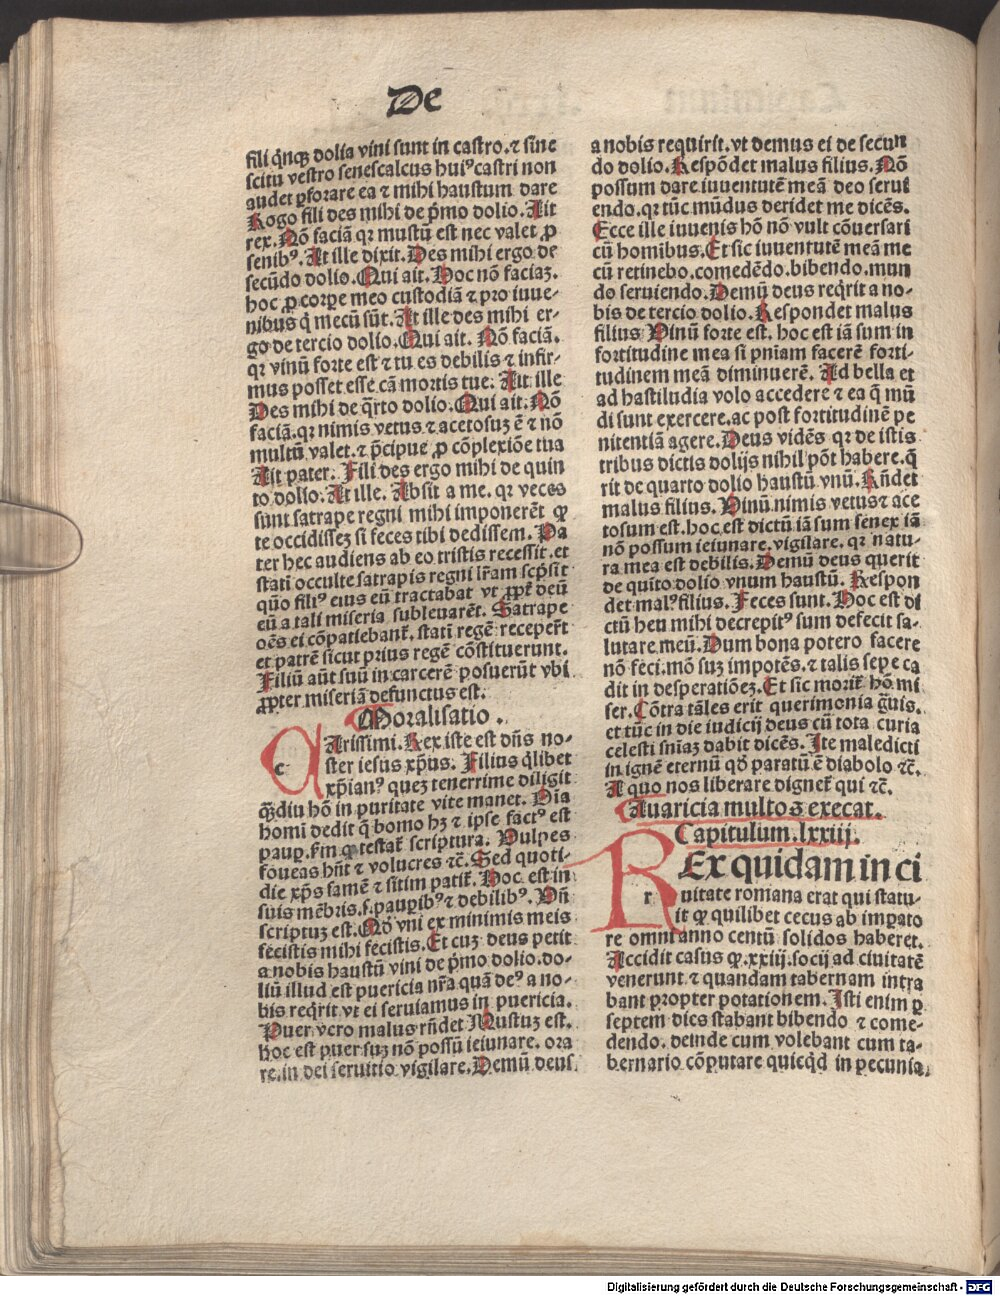 De
fili q̄nqꝫ dolia vini sunt in castro. ⁊ sine
scitu vestro senescalcus hui⁹ castri non
audet ꝑforare ea ⁊ mihi haustum dare
Rogo fili des mihi de p̄mo dolio. Ait
rex. Nō faciā qꝛ mustū est nec valet ꝓ
senib⁹. At ille dixit. Des mihi ergo de
secūdo dolio. Qui ait. Hoc nō faciaꝫ.
hoc ꝓ corꝑe meo custodiā ⁊ pro iuue-
nibus q̄ mecū sūt. At ille des mihi er-
go de tercio dolio. Qui ait. Nō faciā.
qꝛ vinū forte est ⁊ tu es debilis ⁊ infir-
mus posset esse cā mortis tue. Ait ille
Des mihi de q̄rto dolio. Qui ait. Nō
faciā. qꝛ nimis vetus ⁊ acetosuꝫ ē ⁊ nō
multū valet. ⁊ p̄cipue ꝓ cōplexiōe tua
Ait pater. Fili des ergo mihi de quin
to dolio. At ille. Absit a me. qꝛ veces
sunt satrape regni mihi imponerēt ꝙ
te occidisseꝫ si feces tibi dedissem. Pa
ter hec audiens ab eo tristis recessit. et
stati occulte satrapis regni lr̄am scp̄sit
quō fili⁹ eius eū tractabat vt ꝓpt̄ deū
eū a tali miseria subleuarēt. Satrape
oēs ei cōpatiebant᷑. statī regē recepert̄
et patrē sicut prius regē cōstituerunt.
Filiū aūt suū in carcerē posuerūt vbi
ꝓpter miseriā defunctus est.
Moralisatio.
c Arissimi. Rex iste est dn̄s no-
ster iesus xp̄us. Filius q̄libet
xp̄ian⁹ quez tenerrime diligit
q̄ꝫdiu hō in puritate vite manet. Oīa
homi dedit q̄ homo hꝫ ⁊ ipse fact⁹ est
pauꝑ. s̄m ꝙ testat᷑ scriptura. Vulpes
foueas hn̄t ⁊ volucres ⁊c̄. Sed quoti-
die xp̄s famē ⁊ sitim patit᷑. Hoc est in
suis mēbris. s. pauꝑib⁹ ⁊ debilib⁹. Vn̄
scriptuꝫ est. Qō vni ex minimis meis
fecistis mihi fecistis. Et cuꝫ deus petit
a nobis haustū vini de p̄mo dolio. do-
liū illud est puericia nr̄a quā de⁹ a no-
bis req̄rit vt ei seruiamus in puericia.
Puer vero malus rn̄det Mustuꝫ est.
hoc est puer suꝫ nō possū ieiunare. ora
re. in dei seruitio vigilare. Demū deus
a nobis requirit. vt demus ei de secun
do dolio. Respōdet malus filius. Nō
possum dare iuuentutē meā deo serui
endo. qꝛ tūc mūdus deridet me dicēs.
Ecce ille iuuenis hō nō vult cōuersari
cū homibus. Et sic iuuentutē meā me
cū retinebo. comedēdo. bibendo. mun
do seruiendo. Demū deus req̄rit a no-
bis de tercio dolio. Respondet malus
filius Vinū forte est. hoc est iā sum in
fortitudine mea si pniam facerē forti-
tudinem meā diminuerē. Ad bella et
ad hastiludia volo accedere ⁊ ea q̄ mū
di sunt exercere. ac post fortitudinē pe
nitentiā agere. Deus vidēs qꝛ de istis
tribus dictis dolijs nihil pōt habere. q̄
rit de quarto dolio haustū vnū. Rn̄det
malus filius. Vinū nimis vetus ⁊ ace
tosum est. hoc est dictū iā sum senex iā
nō possum ieiunare. vigilare. qꝛ natu-
ra mea est debilis. Demū deus querit
de quito dolio vnum haustū. Respon
det mal⁹ filius. Feces sunt. Hoc est di
ctū heu mihi decrepit⁹ sum defecit sa-
lutare meū. Dum bona potero facere
nō feci. mō suꝫ impotēs. ⁊ talis sepe ca
dit in desperatiōeꝫ. Et sic morit᷑ hō mi
ser. Cōtra tāles erit querimonia gr̄uis.
et tūc in die iudicij deus cū tota curia
celesti sn̄iaꝫ dabit dicēs. Ite maledicti
in ignē eternū qd̄ paratū ē diabolo ⁊c̄.
A quo nos liberare dignet᷑ qui ⁊c̄.
Auaricia multos execat.
Capitulum. lxxiij.
r Ex quidam in ci
uitate romana erat qui statu-
it ꝙ quilibet cecus ab imꝑato
re omni anno centū solidos haberet.
Accidit casus ꝙ. xxiij. socij ad ciuitatē
venerunt ⁊ quandam tabernam intra
bant propter potationem. Isti enim ꝑ
septem dies stabant bibendo ⁊ come-
dendo. deinde cum volebant cum ta-
bernario cōputare quicq̄d in pecunia.
Digitalisierung gefördert durch die Deutsche Forschungsgemeinschaft - DFG